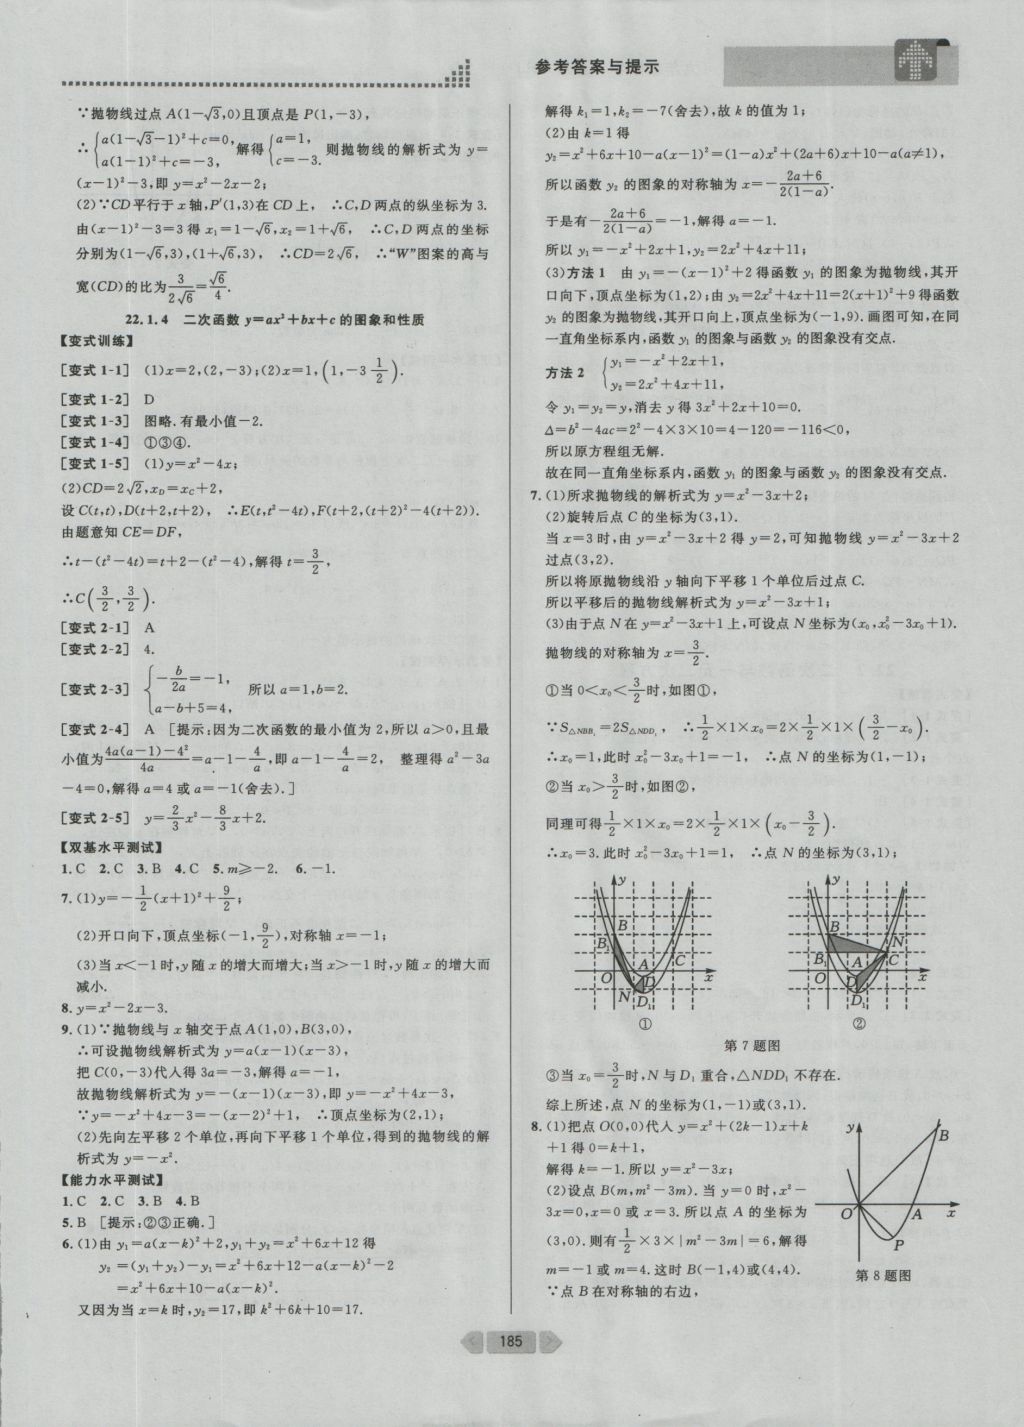 参考答案与提示
∵抛物线过点 A(1−√3,0)且顶点是 P(1,−3),
∴{a(1−√3−1)²+c=0, a(1−1)²+c=−3, 解得{a=1, c=−3. 则抛物线的解析式为 y=
(x−1)²−3,即 y=x²−2x−2;
(2)∵CD平行于 x 轴,P′(1,3)在 CD 上, ∴C,D 两点的纵坐标为 3.
由(x−1)²−3=3 得 x₁=1−√6,x₂=1+√6, ∴C,D 两点的坐标
分别为(1−√6,3),(1+√6,3), ∴CD=2√6, ∴“W”图案的高与
宽(CD)的比为 3/(2√6)=√6/4.
22.1.4 二次函数 y=ax²+bx+c 的图象和性质
【变式训练】
[变式 1-1] (1)x=2,(2,−3);(2)x=1,(1,−3 1/2).
[变式 1-2] D
[变式 1-3] 图略.有最小值−2.
[变式 1-4] ①③④.
[变式 1-5] (1)y=x²−4x;
(2)CD=2√2,x_D=x_C+2,
设 C(t,t),D(t+2,t+2), ∴E(t,t²−4t),F(t+2,(t+2)²−4(t+2)).
由题意知 CE=DF,
∴t−(t²−4t)=t+2−(t²−4),解得 t=3/2,
∴C(3/2,3/2).
[变式 2-1] A
[变式 2-2] 4.
[变式 2-3] {−b/2a=−1, a−b+5=4, 所以 a=1,b=2.
[变式 2-4] A [提示:因为二次函数的最小值为 2,所以 a>0,且最
小值为(4a(a−1)−4²)/4a=a−1−4/a,即 a−1−4/a=2, 整理得 a²−3a
−4=0,解得 a=4 或 a=−1(舍去).]
[变式 2-5] y=2/3x²−8/3x+2.
【双基水平测试】
1. C 2. C 3. B 4. C 5. m≥−2. 6. −1.
7. (1)y=−1/2(x+1)²+9/2;
(2)开口向下,顶点坐标(−1,9/2),对称轴 x=−1;
(3)当 x<−1 时,y 随 x 的增大而增大;当 x>−1 时,y 随 x 的增大而
减小.
8. y=x²−2x−3.
9. (1)∵抛物线与 x 轴交于点 A(1,0),B(3,0),
∴可设抛物线解析式为 y=a(x−1)(x−3),
把 C(0,−3)代人得 3a=−3,解得 a=−1,
故抛物线解析式为 y=−(x−1)(x−3),即 y=−x²+4x−3,
∵y=−x²+4x−3=−(x−2)²+1, ∴顶点坐标为(2,1);
(2)先向左平移 2 个单位,再向下平移 1 个单位,得到的抛物线的解
析式为 y=−x².
【能力水平测试】
1. C 2. C 3. B 4. B
5. B [提示:②③正确.]
6. (1)由 y₁=a(x−k)²+2,y₁+y₂=x²+6x+12 得
y₂=(y₁+y₂)−y₁=x²+6x+12−a(x−k)²−2
=x²+6x+10−a(x−k)².
又因为当 x=k 时,y₂=17,即 k²+6k+10=17.
解得 k₁=1,k₂=−7(舍去),故 k 的值为 1;
(2)由 k=1 得
y₂=x²+6x+10−a(x−1)²=(1−a)x²+(2a+6)x+10−a(a≠1),
所以函数 y₂ 的图象的对称轴为 x=−(2a+6)/(2(1−a)).
于是有−(2a+6)/(2(1−a))=−1,解得 a=−1.
所以 y₁=−x²+2x+1,y₂=2x²+4x+11;
(3)方法 1 由 y₁=−(x−1)²+2 得函数 y₁ 的图象为抛物线,其开
口向下,顶点坐标为(1,2);由 y₂=2x²+4x+11=2(x+1)²+9 得函数
y₂ 的图象为抛物线,其开口向上,顶点坐标为(−1,9).画图可知,在同
一直角坐标系内,函数 y₁ 的图象与函数 y₂ 的图象没有交点.
方法 2 {y₁=−x²+2x+1, y₂=2x²+4x+11,
令 y₁=y₂=y,消去 y 得 3x²+2x+10=0.
Δ=b²−4ac=2²−4×3×10=4−120=−116<0,
所以原方程组无解.
故在同一直角坐标系内,函数 y₁ 的图象与函数 y₂ 的图象没有交点.
7. (1)所求抛物线的解析式为 y=x²−3x+2;
(2)旋转后点 C 的坐标为(3,1).
当 x=3 时,由 y=x²−3x+2 得 y=2,可知抛物线 y=x²−3x+2
过点(3,2).
所以将原抛物线沿 y 轴向下平移 1 个单位后过点 C.
所以平移后的抛物线解析式为 y=x²−3x+1;
(3)由于点 N 在 y=x²−3x+1 上,可设点 N 坐标为(x₀,x₀²−3x₀+1).
抛物线的对称轴为 x=3/2.
①当 0<x₀<3/2时,如图①,
∵S△NBB₁=2S△NDD₁, ∴1/2×1×x₀=2×1/2×1×(3/2−x₀).
∴x₀=1,此时 x₀²−3x₀+1=−1, ∴点 N 的坐标为(1,−1);
②当 x₀>3/2时,如图②,
同理可得1/2×1×x₀=2×1/2×1×(x₀−3/2).
∴x₀=3.此时 x₀²−3x₀+1=1, ∴点 N 的坐标为(3,1);
y B B₁ O A C D N D₁ x
①
y B B₁ N C A O D D₁ x
②
第 7 题图
③当 x₀=3/2时,N 与 D₁ 重合,△NDD₁ 不存在.
综上所述,点 N 的坐标为(1,−1)或(3,1).
8. (1)把点 O(0,0)代人 y=x²+(2k−1)x+k
+1 得 0=k+1,
解得 k=−1.所以 y=x²−3x;
(2)设点 B(m,m²−3m).当 y=0 时,x²−
3x=0,x=0 或 x=3.所以点 A 的坐标为
(3,0).则有1/2×3×|m²−3m|=6,解得
m=−1 或 m=4.这时 B(−1,4)或(4,4).
∵点 B 在对称轴的右边,
y B O A x P
第 8 题图
185